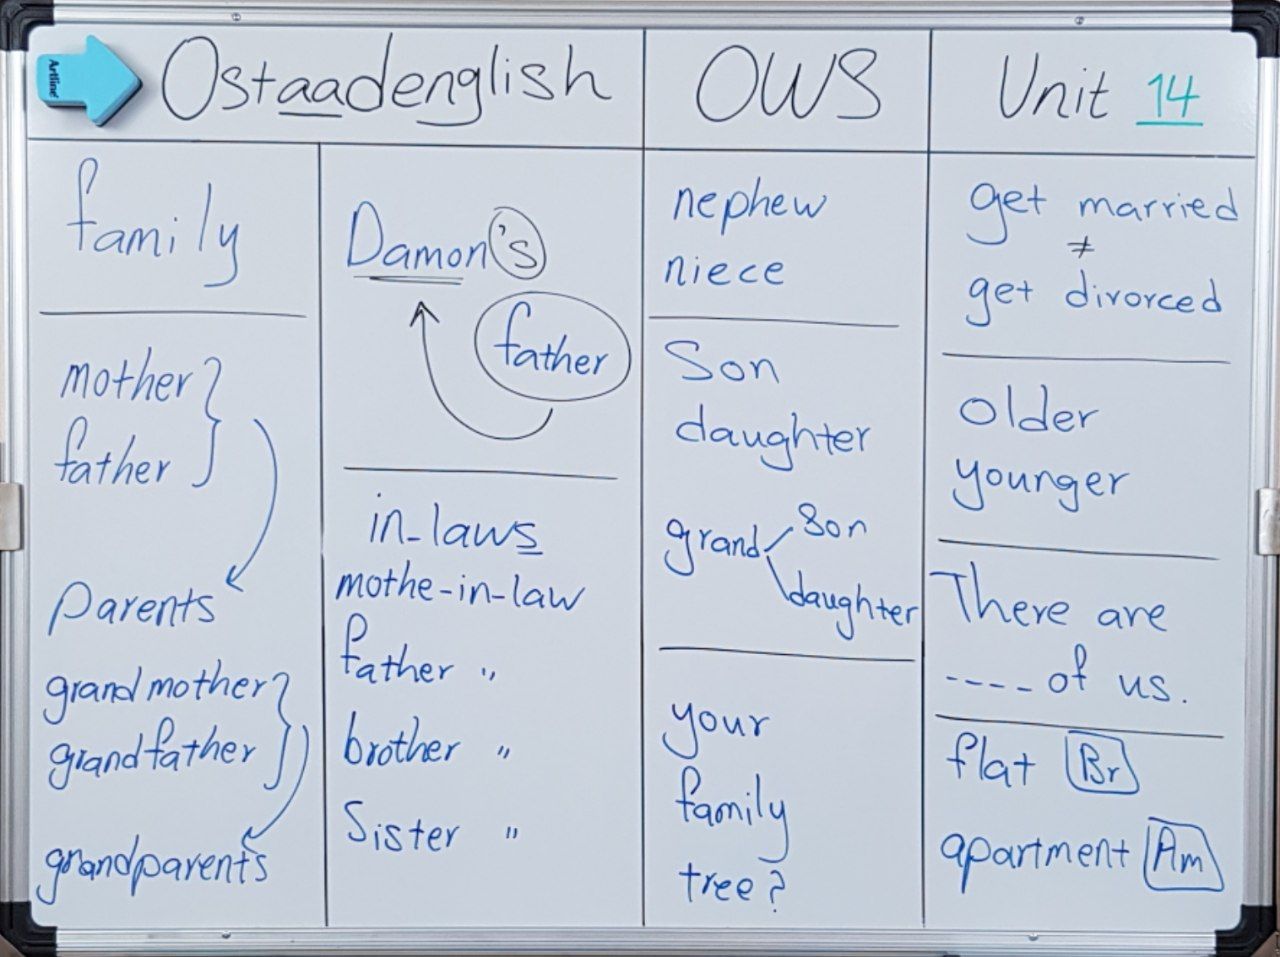 Artline
Ostaadenglish
OWS
Unit 14
family
mother
father
parents
grandmother
grandfather
grandparents
Damon's
father
in-laws
mothe-in-law
father "
brother "
Sister "
nephew
niece
Son
daughter
grand
son
daughter
your
family
tree?
get married
≠
get divorced
older
younger
There are
---- of us.
flat Br
apartment Am